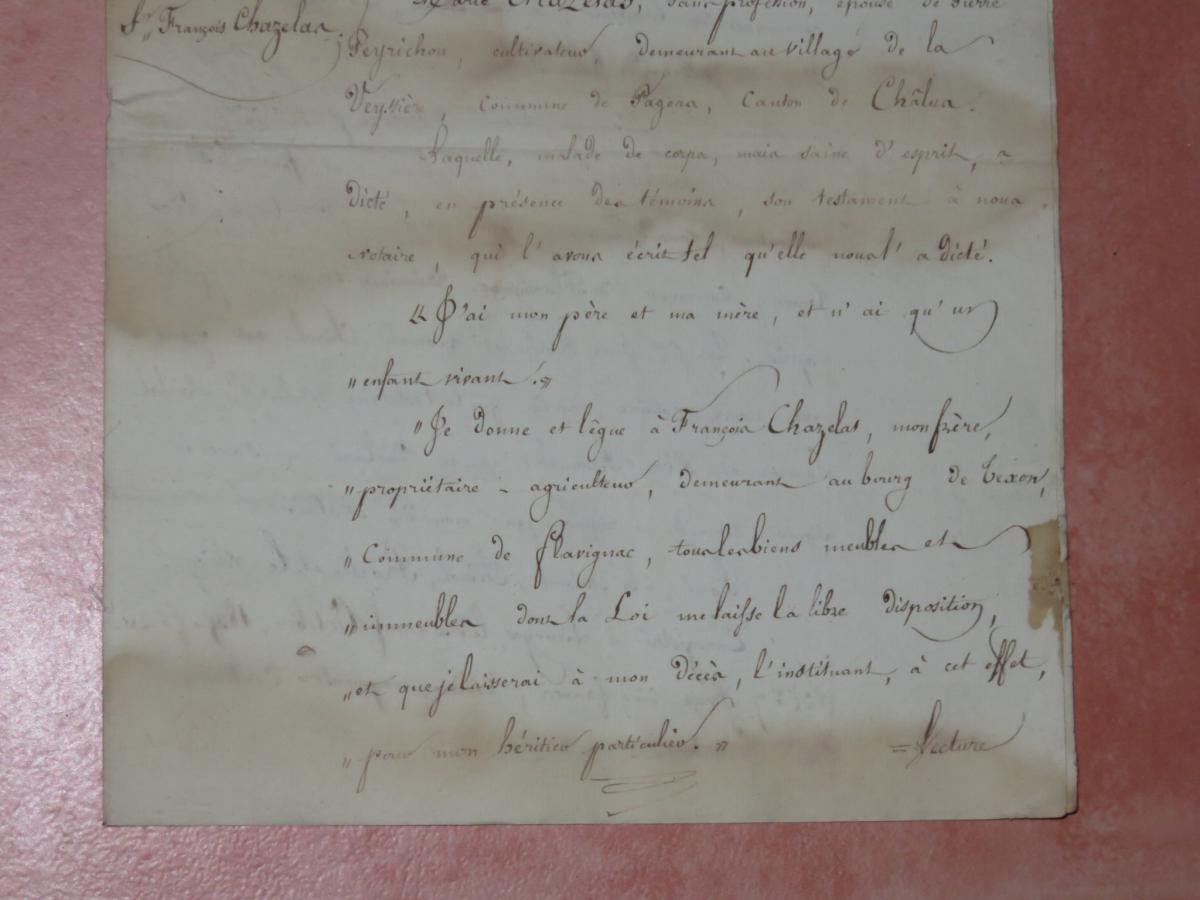 Marie Chazelas, sans profession, épouse de Pierre
Sr François Chazelas.
Peyrichou, cultivateur, demeurant au village de la
Veyssière, Commune de Pageas, Canton de Châlus.
Laquelle, malade de corps, mais saine d'esprit, a
dicté, en présence des témoins, son testament à nous
notaire, qui l'avons écrit tel qu'elle nous l'a dicté.
« J'ai mon père et ma mère, et n'ai qu'un
" enfant vivant. »
" Je donne et lègue à François Chazelas, mon frère,
" propriétaire - agriculteur, demeurant au bourg de Texon,
" Commune de Flavignac, tous les biens meubles et
" immeubles dont la Loi me laisse la libre disposition,
" et que je laisserai à mon décès, l'instituant, à cet effet,
" pour mon héritier particulier. » = Lecture